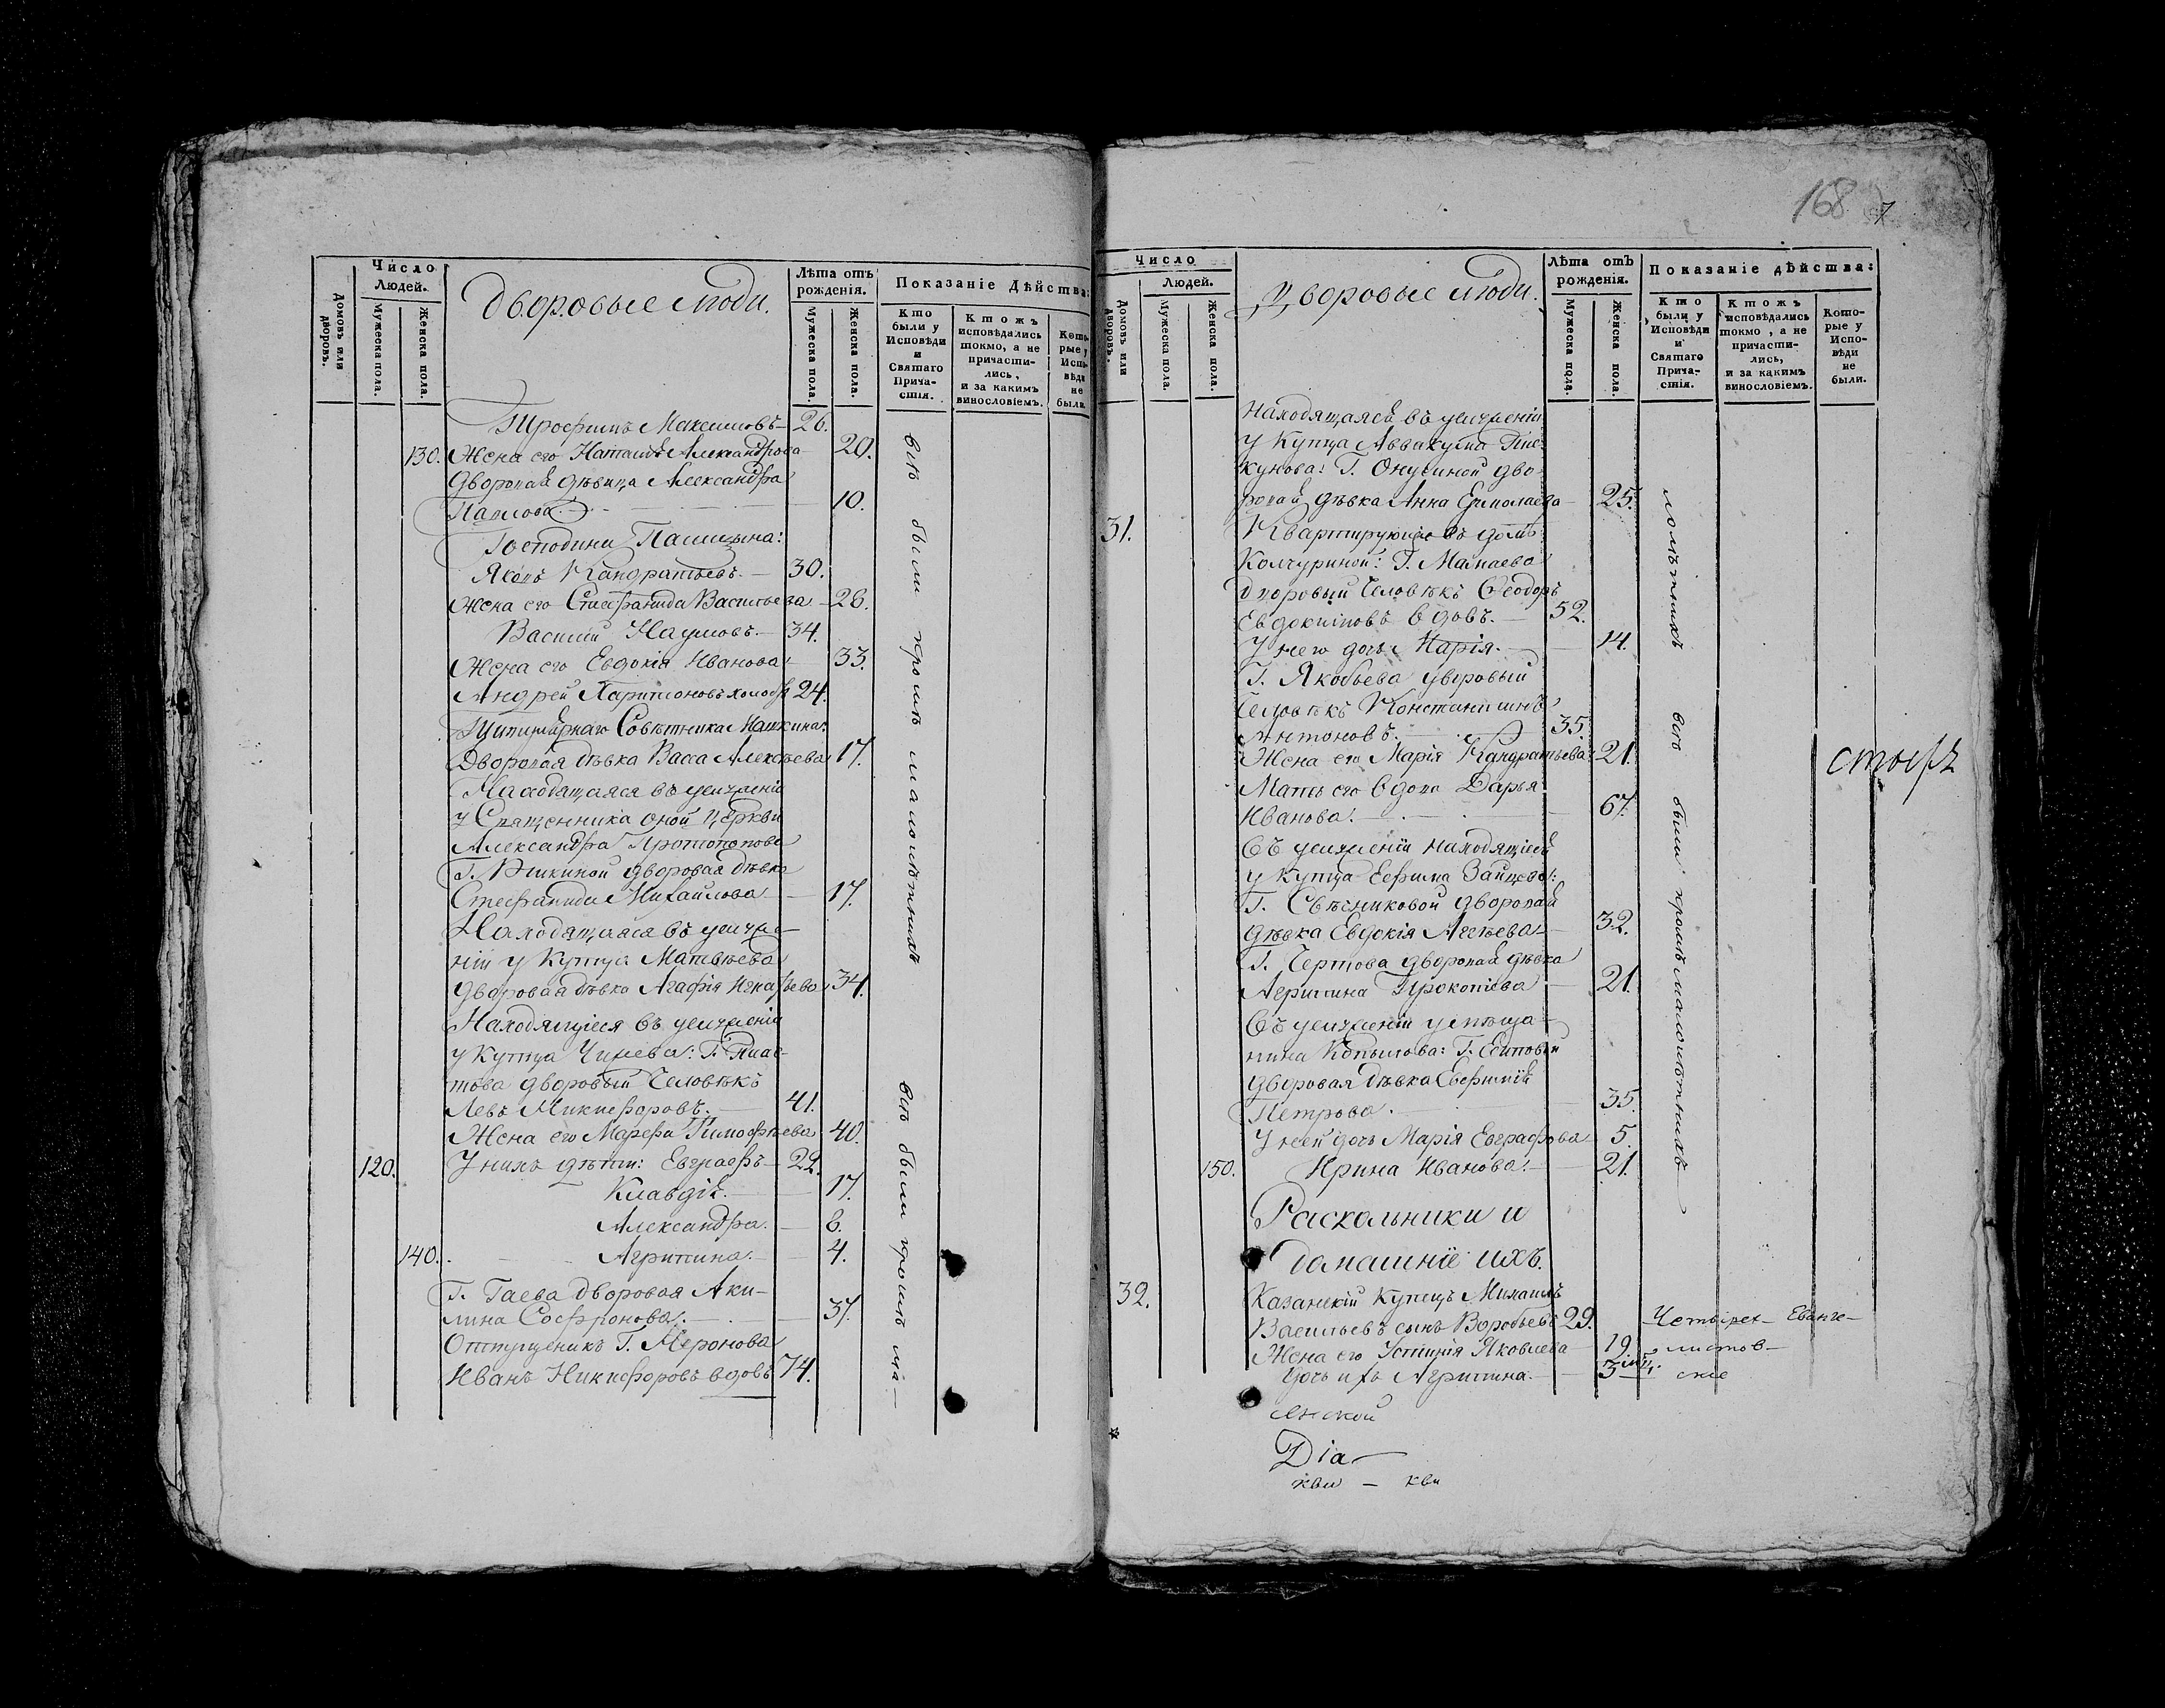 Число
Людей.
Домовъ или дворовъ.
Мужеска пола.
Женска пола.
Дворовые люди.
Лѣта отъ
рожденія.
Мужеска пола.
Женска пола.
Показаніе Дѣйства:
Кто
были у
Исповѣди
и
Святаго
Прича-
стія.
Ктожъ
исповѣдались
токмо, а не
причасти-
лись,
и за какимъ
винословіемъ.
Кото-
рые у
Испо-
вѣди
не
были.
Трофимъ Максимовъ 26.
130. Жена его Наталья Александрова 20.
Дворовая дѣвица Александра
Павлова 10.
Господина Палицына:
Яковъ Кандратьевъ. 30.
Жена его Стефанида Васильева 28.
Василій Наумовъ. 34.
Жена его Евдокія Иванова. 33.
Андрей Харитоновъ холостъ 24.
Титулярнаго Совѣтника
Дворовая дѣвка Васса Алексѣева 17.
Находящаяся въ услуженіи
у Священника оной Церкви
Александра Протопопова
Г. дворовая дѣвка
Стефанида Михайлова 17.
Находящаяся въ услуже-
ніи у Купца Матвѣева
дворовая дѣвка Агафія Игнатьева 34.
Находящіеся въ услуженіи
у Купца Чинева: Г.
това дворовый Человѣкъ
Левъ Никифоровъ. 41.
Жена его Марефа Тимофѣева 40.
120. У нихъ дѣти: Евграфъ 22.
Клавдія. 17.
Александра. 8.
140. Агрипина. 4.
Г. Гаева дворовая Аки-
лина Софронова. 37.
Отпущеникъ Г. Меронова
Иванъ Никифоровъ вдовъ 74.
всѣ были кромѣ малолѣтныхъ
всѣ были кромѣ ма-
168
7
Число
Людей.
Домовъ или дворовъ.
Мужеска пола.
Женска пола.
Дворовые люди.
Лѣта отъ
рожденія.
Мужеска пола.
Женска пола.
Показаніе дѣйства:
Кто
были у
Исповѣди
и
Святаго
Прича-
стія.
Ктожъ
исповѣдались
токмо, а не
причасти-
лись,
и за какимъ
винословіемъ.
Кото-
рые у
Испо-
вѣди
не
были.
Находящаяся въ услуженіи
у Купца Аввакума
кунова: Г. дво-
ровая дѣвка Анна Ермолаева 25.
31. Квартирующіе въ домѣ
Колчуриной: Г. Манаева
дворовый Человѣкъ Ѳеодоръ
Евдокимовъ вдовъ. 52.
У него дочь Марія. 14.
Г. Якобьева дворовый
Человѣкъ Константинъ
Антоновъ. 35.
Жена его Марія Кандратьева 21.
Мать его вдова Дарья
Иванова. 67.
Въ услуженіи находящіеся
у Купца Ефима Зайцева:
Г. Свѣшниковой дворовая
дѣвка Евдокія Агеѣева 32.
Г. Чертова дворовая дѣвка
Агрипина Прокопіева 21.
Въ услуженіи у мѣща-
нина Копылова: Г. Есиповой
дворовая дѣвка Евфимія
Петрова. 35.
У ней дочь Марія Евграфова 5.
150. Ирина Иванова. 21.
лолѣтныхъ всѣ были кромѣ малолѣтныхъ
стыръ
Раскольники и
домашніе ихъ.
32. Казанскій Купецъ Михаилъ
Васильевъ сынъ Воробьевъ 29. Четырех- Еванге-
Жена его Устинія Яковлева 19. листов-
Дочь ихъ Агрипина. 3. ские
янской
Dia
кви – кви